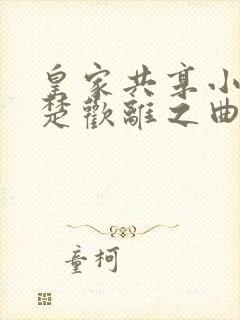 皇家共享小
楚歡離之曲
童柯